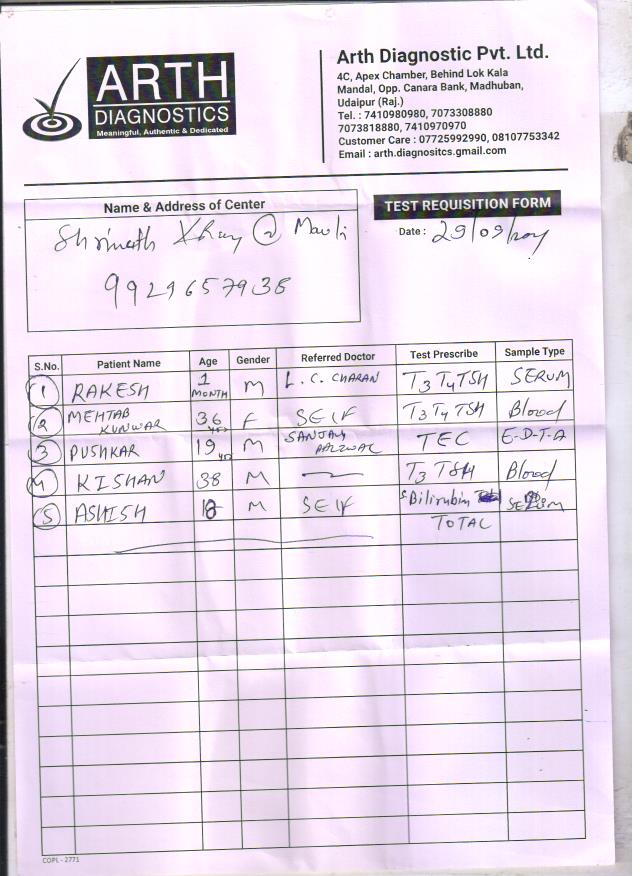 ARTH
DIAGNOSTICS
Meaningful, Authentic & Dedicated
Arth Diagnostic Pvt. Ltd.
4C, Apex Chamber, Behind Lok Kala
Mandal, Opp. Canara Bank, Madhuban,
Udaipur (Raj.)
Tel. : 7410980980, 7073308880
7073818880, 7410970970
Customer Care : 07725992990, 08107753342
Email : arth.diagnositcs.gmail.com
Name & Address of Center
Shrinath Xray @ Mavli
9929657938
TEST REQUISITION FORM
Date : 29/09/
S.No. Patient Name Age Gender Referred Doctor Test Prescribe Sample Type
1 RAKESH 1 MONTH M L. C. CHARAN T3 T4 TSH SERUM
2 MEHTAB KUNWAR 36 yrs F SELF T3 T4 TSH Blood
3 PUSHKAR 19 yrs M SANJAY TEC E-D-T-A
4 KISHAN 38 M — T3 TSH Blood
5 ASHISH 18 M SELF S Bilirubin SERUM
TOTAL
COPL - 2771